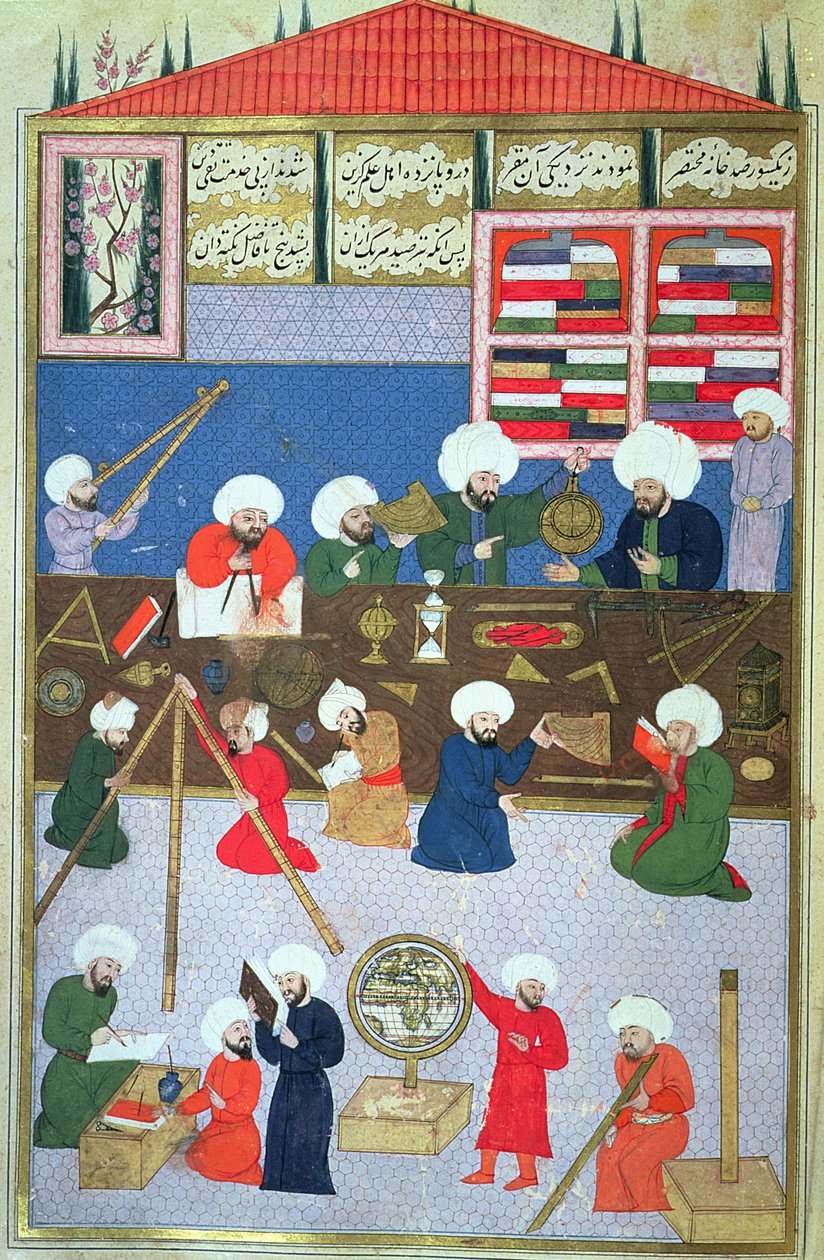 زیکسو رصد خانه مختصر نمودند نزدیکی آن مقر درو پانزده اهل علم گزین شدند از پی خدمت تقی دین
پس انکه بترصید هر یک ازان بشد پنج تا فاضل نکته دان